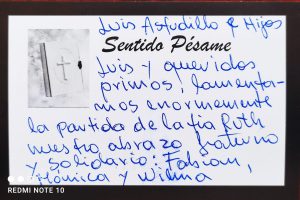 Luis Astudillo e Hijos
Sentido Pésame
Luis y queridos
primos, lamenta-
mos enormemente
la partida de la tía Ruth
nuestro abrazo fraterno
y solidario: Fabián,
Mónica y Wilma
REDMI NOTE 10